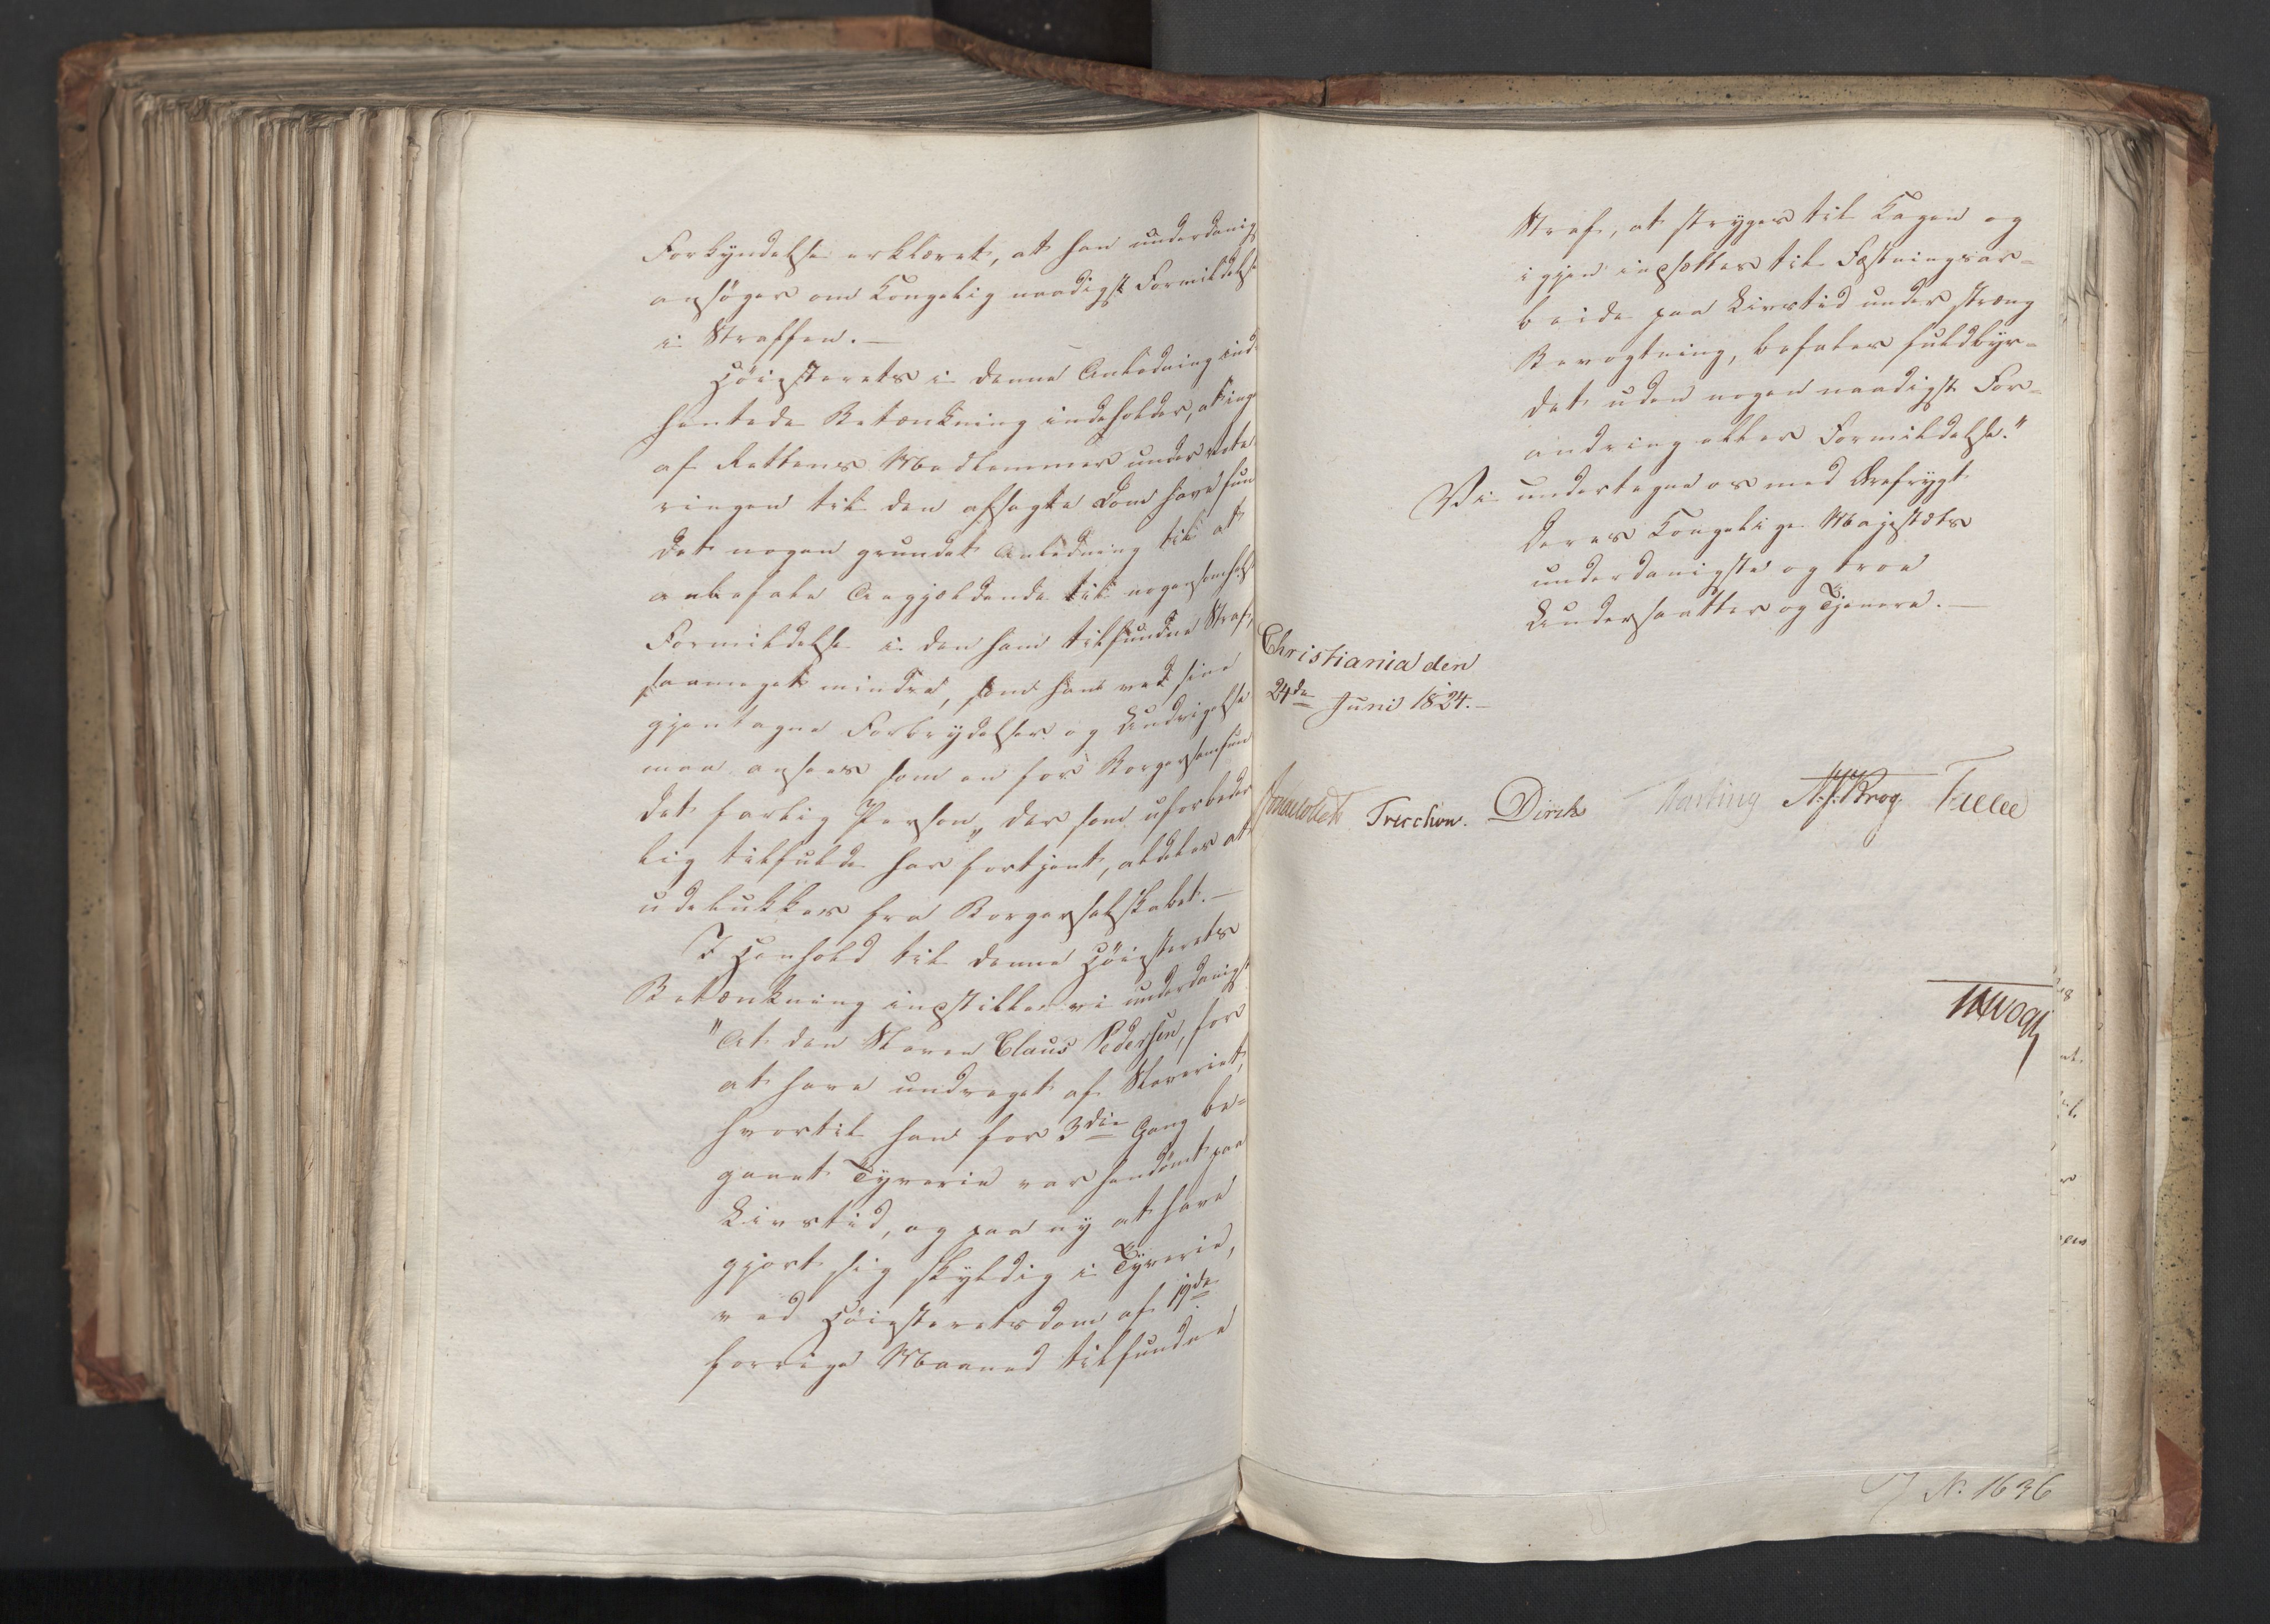 Forkyndelse erklæret, at han underdanig
ansøger om Kongelig naadigst Formildelse
i Straffen. —
Høiesterets i denne Anledning ind
hentede Betænkning indeholder, at ingen
af Rettens Medlemmer under Vote
ringen til den afsagte Dom have fun
det nogen grundet Anledning til at
anbefale Angjældende til nogensomhelst
Formildelse i den ham tilfundne Straf,
saameget mindre, som han ved sine
gjentagne Forbrydelser og Undvigelse
maa ansees som en for Borgersamfun
det farlig Person, der som uforbeder
lig tilfulde har fortjent, aldeles at
udelukkes fra Borgerselskabet. —
I Henhold til denne Høiesterets
Betænkning indstille vi underdanigst
"At den Slaven Claus Pedersen, for
at have undveget af Slaveriet,
hvortil han for 3die Gang be=
gaaet Tyverie var hendømt paa
Livstid, og paa ny at have
gjort sig skyldig i Tyverie,
ved Høiesteretsdom af 19de
forrige Maaned tilfundne
Straf, at stryges til Kagen og
igjen indsættes til Fæstningsar=
beide paa Livstid under streng
Bevogtning, befales fuldbyr=
det uden nogen naadigst For=
andring eller Formildelse."
Vi undertegne os med Ærefrygt
Deres Kongelige Majestæts
underdanigste og troe
Undersaatter og Tjenere. —
Christiania den
24de Juni 1824. —
Treschow. Diriks Krog
N. 1636